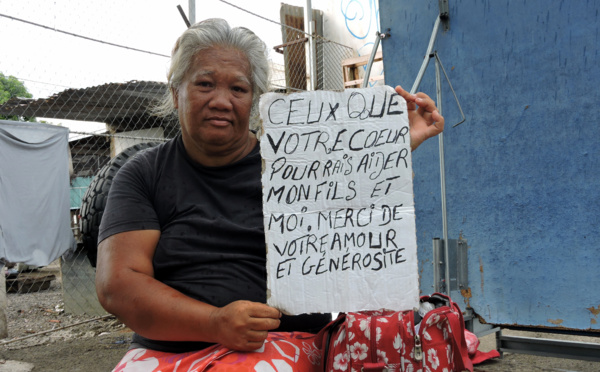 CEUX QUE
VOTRE COEUR
POURRAIS AIDER
MON FILS ET
MOI. MERCI DE
VOTRE AMOUR
ET GÉNÉROSITE